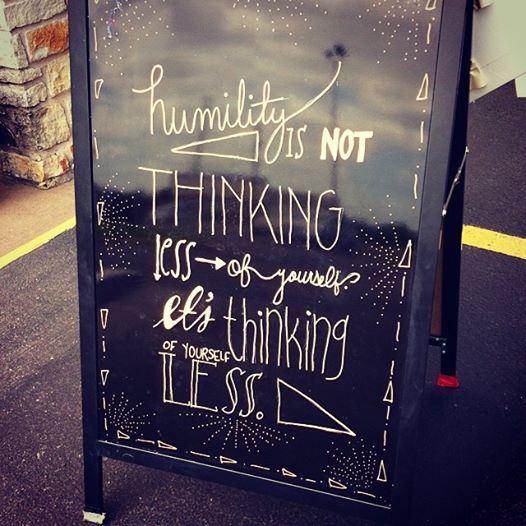 humility
IS NOT
THINKING
less → of yourself.
it's thinking
OF YOURSELF
LESS.